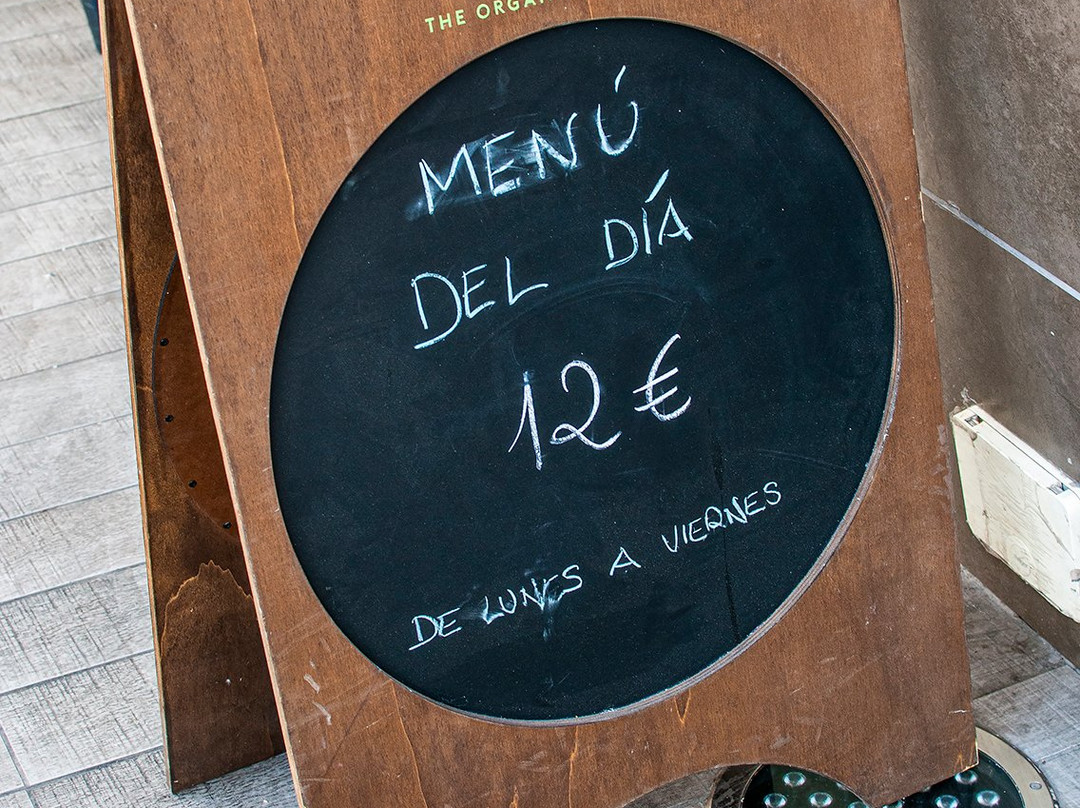 THE
MENÚ
DEL DÍA
12 €
DE LUNES A VIERNES